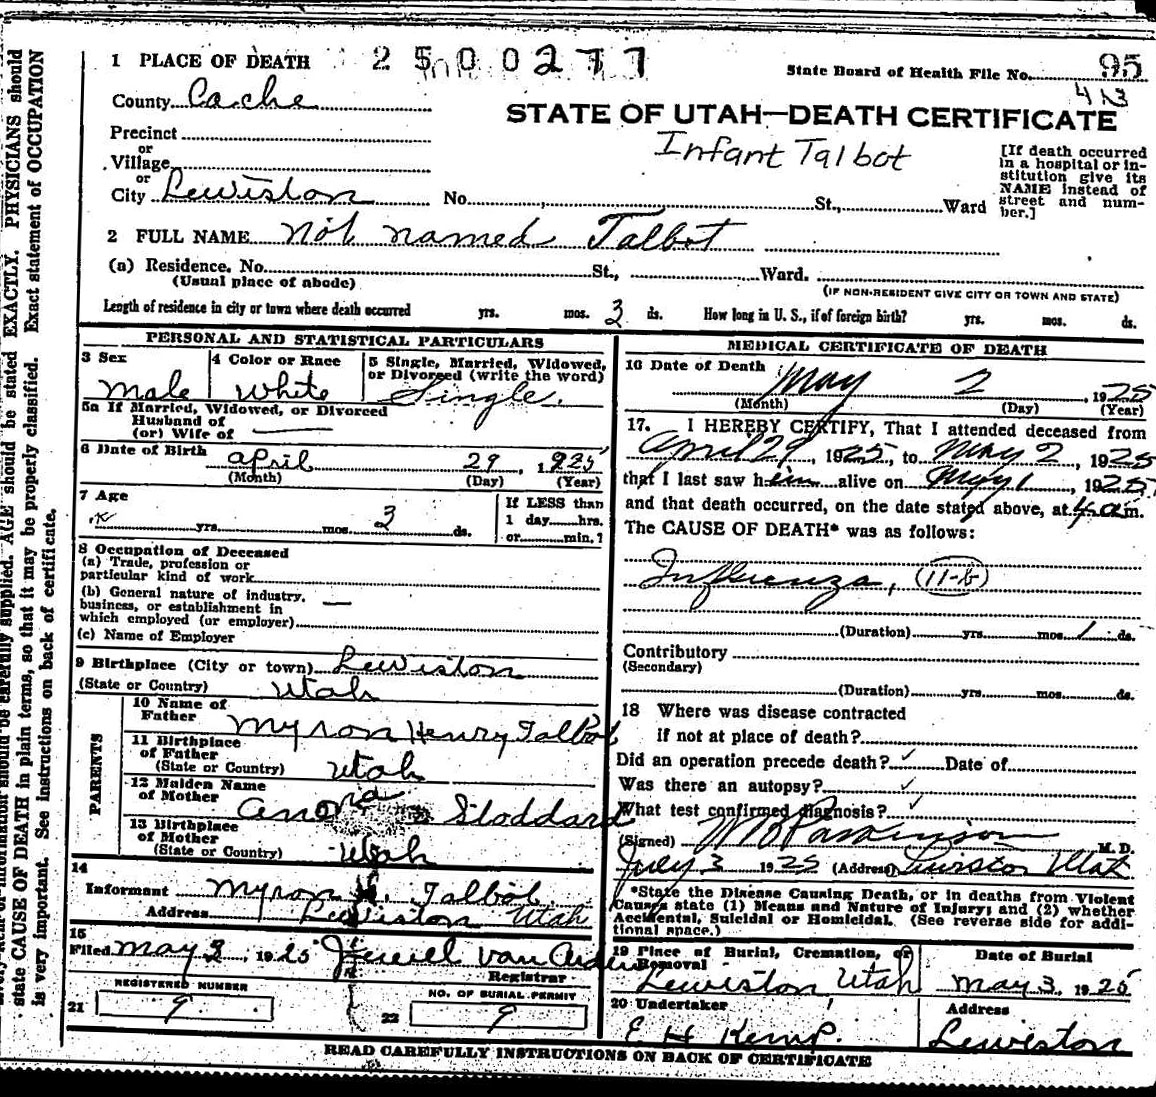 1 PLACE OF DEATH 2500277
State Board of Health File No. 95
413
County Cache
STATE OF UTAH—DEATH CERTIFICATE
Infant Talbot
Precinct
or
Village
or
City Lewiston No. , St., Ward
[If death occurred
in a hospital or in-
stitution give its
NAME instead of
street and num-
ber.]
2 FULL NAME not named Talbot
(a) Residence. No. St., Ward.
(Usual place of abode)
(IF NON-RESIDENT GIVE CITY OR TOWN AND STATE)
Length of residence in city or town where death occurred yrs. mos. 3 ds. How long in U. S., if of foreign birth? yrs. mos. ds.
PERSONAL AND STATISTICAL PARTICULARS
3 Sex
Male
4 Color or Race
White
5 Single, Married, Widowed,
or Divorced (write the word)
Single.
5a If Married, Widowed, or Divorced
Husband of
(or) Wife of
6 Date of Birth April 29, 1925
(Month) (Day) (Year)
7 Age
yrs. mos. 3 ds.
If LESS than
1 day......hrs.
or......min.?
8 Occupation of Deceased
(a) Trade, profession or
particular kind of work
(b) General nature of industry,
business, or establishment in
which employed (or employer)
(c) Name of Employer
9 Birthplace (City or town) Lewiston
(State or Country) Utah
PARENTS
10 Name of
Father Myron Henry Talbot
11 Birthplace
of Father
(State or Country) Utah
12 Maiden Name
of Mother Anora Stoddard
13 Birthplace
of Mother
(State or Country) Utah
14
Informant Myron H. Talbot
Address Lewiston Utah
15
Filed May 3, 1925
Registrar
REGISTERED NUMBER
21 9
NO. OF BURIAL PERMIT
22 9
MEDICAL CERTIFICATE OF DEATH
16 Date of Death May 2, 1925
(Month) (Day) (Year)
17. I HEREBY CERTIFY, That I attended deceased from
April 29, 1925, to May 2, 1925
that I last saw him alive on May 1, 1925,
and that death occurred, on the date stated above, at 4 a m.
The CAUSE OF DEATH* was as follows:
Influenza, (11-B)
(Duration) yrs. mos. 1 ds.
Contributory
(Secondary)
(Duration) yrs. mos. ds.
18 Where was disease contracted
if not at place of death?
Did an operation precede death? ✓ Date of
Was there an autopsy? ✓
What test confirmed diagnosis? ✓
(Signed) Parkinson M. D.
July 3 1925 (Address) Lewiston Utah
*State the Disease Causing Death, or in deaths from Violent
Causes state (1) Means and Nature of Injury; and (2) whether
Accidental, Suicidal or Homicidal. (See reverse side for addi-
tional space.)
19 Place of Burial, Cremation, or
Removal
Lewiston Utah
Date of Burial
May 3 1925
20 Undertaker
E H Kemp.
Address
Lewiston
READ CAREFULLY INSTRUCTIONS ON BACK OF CERTIFICATE
should be carefully supplied. AGE should be stated EXACTLY. PHYSICIANS should
state CAUSE OF DEATH in plain terms, so that it may be properly classified. Exact statement of OCCUPATION
is very important. See instructions on back of certificate.